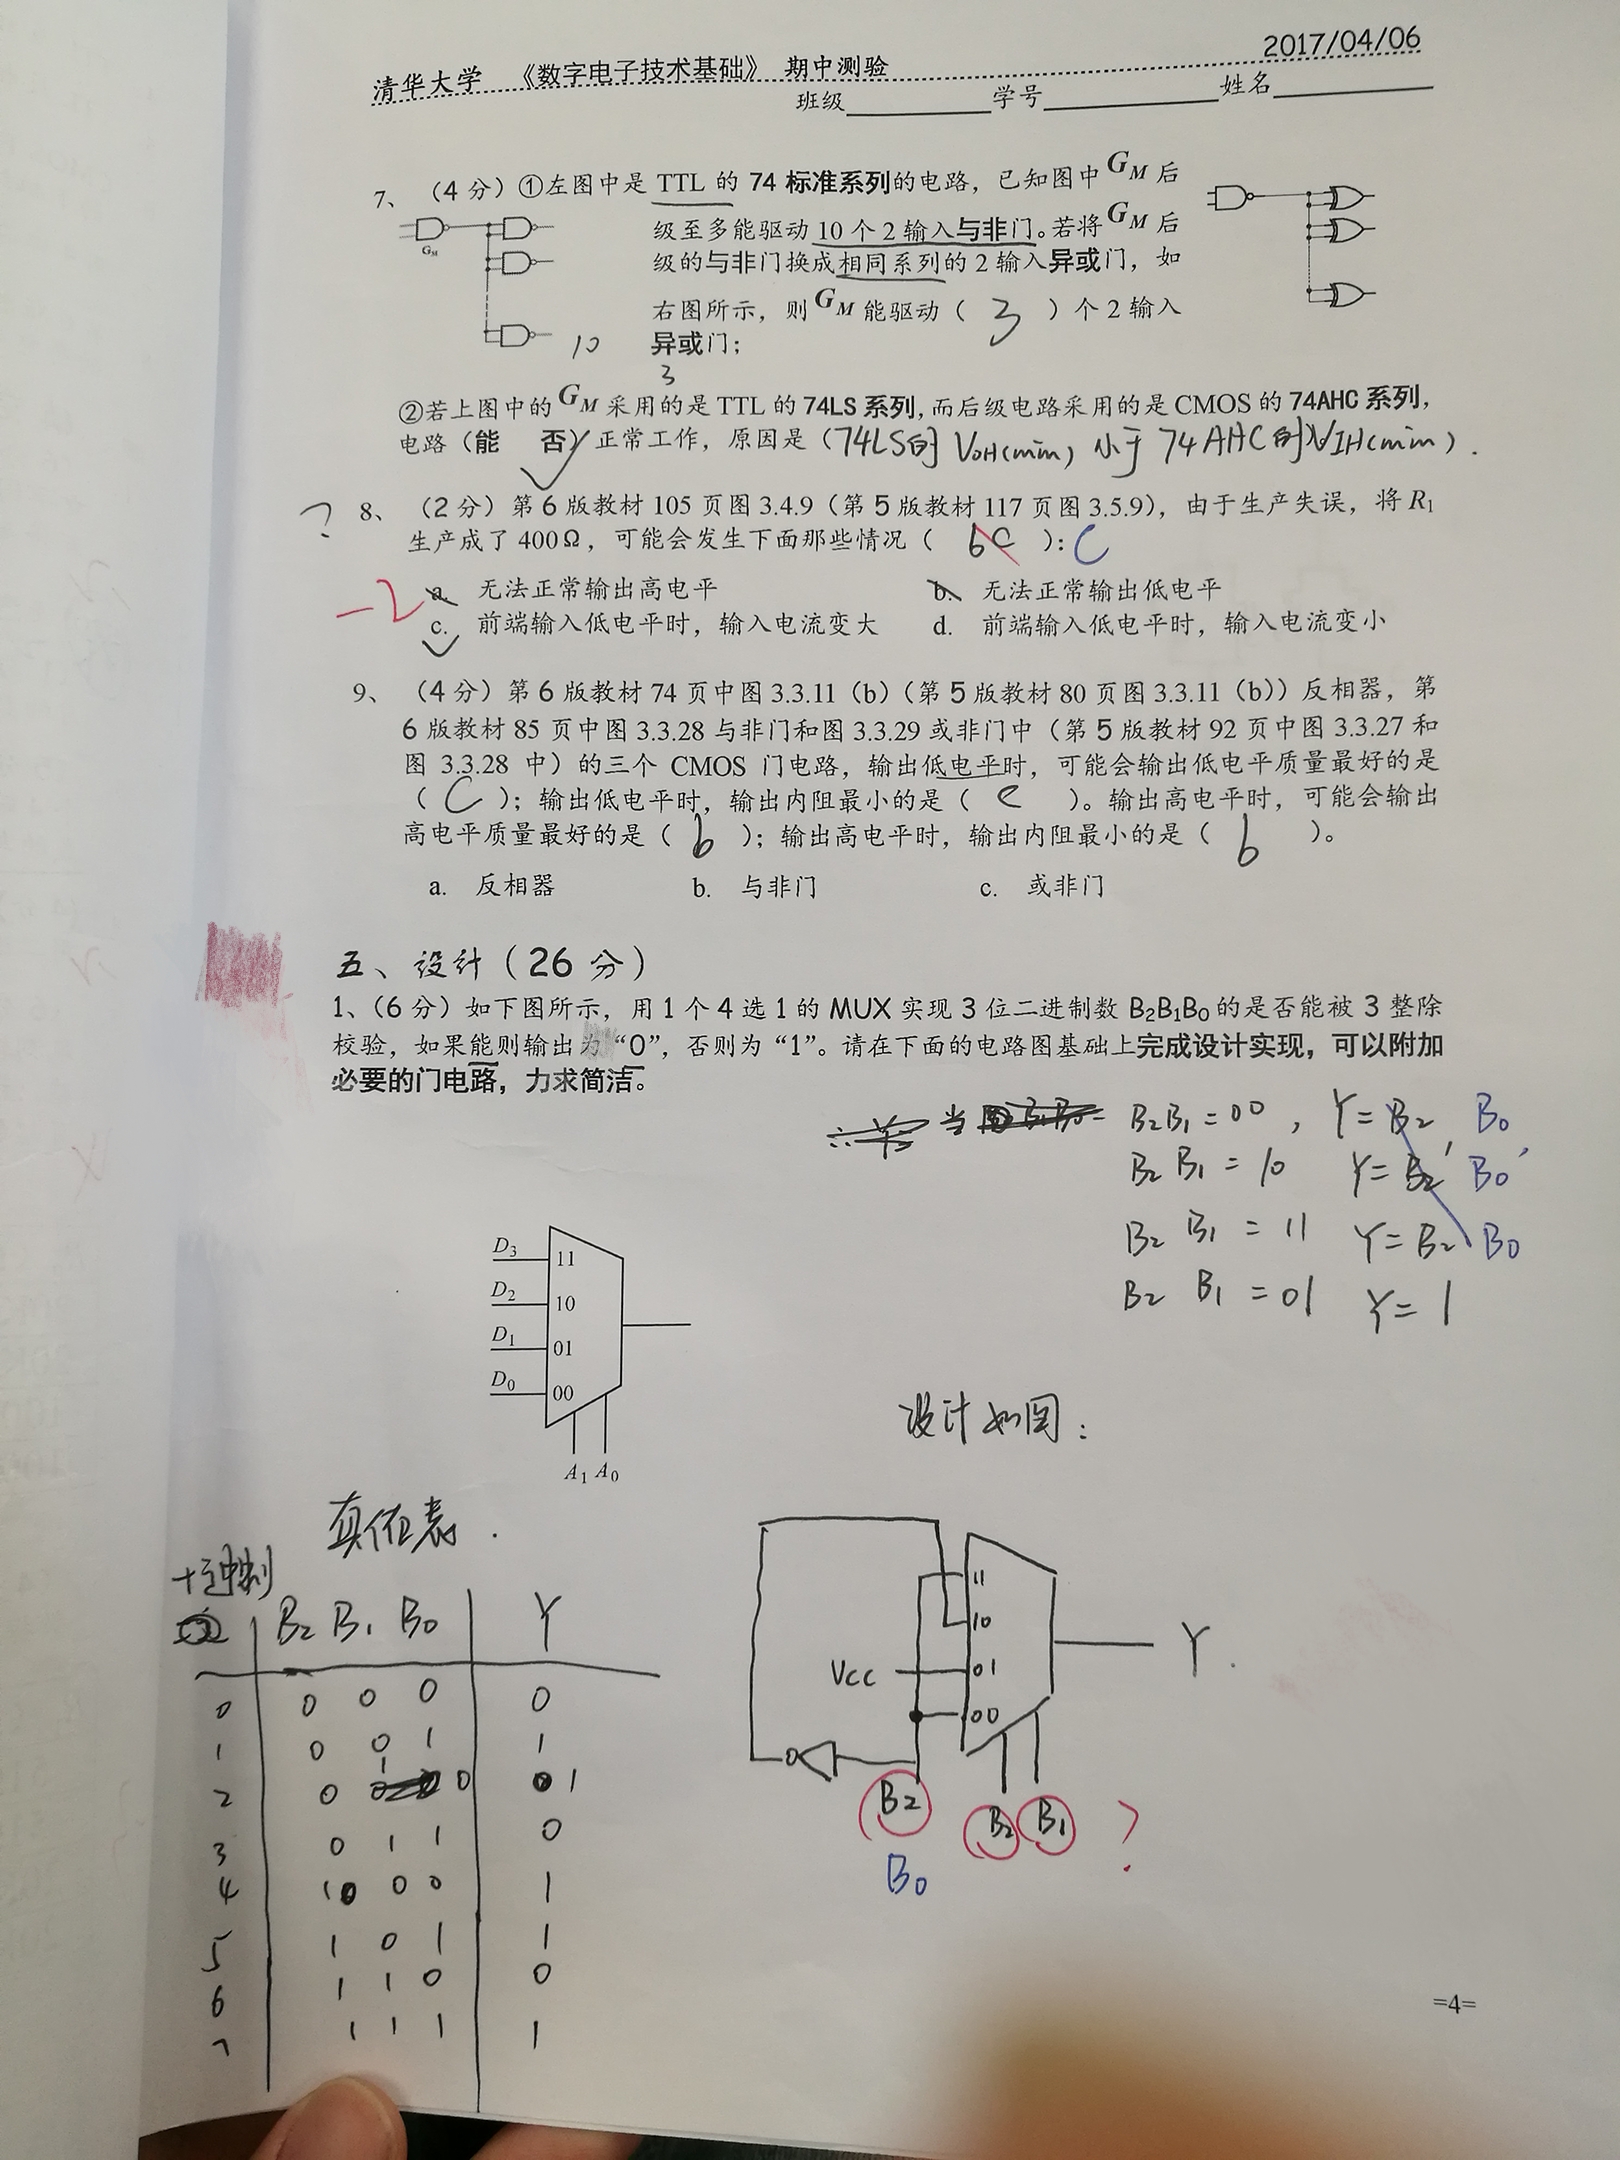 2017/04/06
清华大学 《数字电子技术基础》 期中测验
班级 学号 姓名
7、（4分）①左图中是 TTL 的 74 标准系列的电路，已知图中 GM 后
级至多能驱动 10 个 2 输入与非门。若将 GM 后
级的与非门换成相同系列的 2 输入异或门，如
右图所示，则 GM 能驱动（ 3 ）个 2 输入
异或门；
GM
10
3
②若上图中的 GM 采用的是 TTL 的 74LS 系列，而后级电路采用的是 CMOS 的 74AHC 系列，
电路（能 否）正常工作，原因是（74LS的 VOH(min) 小于 74AHC的VIH(min)）.
? 8、（2分）第 6 版教材 105 页图 3.4.9（第 5 版教材 117 页图 3.5.9），由于生产失误，将 R1
生产成了 400Ω，可能会发生下面那些情况（ bc ）：C
-2
a. 无法正常输出高电平 b. 无法正常输出低电平
c. 前端输入低电平时，输入电流变大 d. 前端输入低电平时，输入电流变小
9、（4分）第 6 版教材 74 页中图 3.3.11（b）（第 5 版教材 80 页图 3.3.11（b））反相器，第
6 版教材 85 页中图 3.3.28 与非门和图 3.3.29 或非门中（第 5 版教材 92 页中图 3.3.27 和
图 3.3.28 中）的三个 CMOS 门电路，输出低电平时，可能会输出低电平质量最好的是
（ C ）；输出低电平时，输出内阻最小的是（ C ）。输出高电平时，可能会输出
高电平质量最好的是（ b ）；输出高电平时，输出内阻最小的是（ b ）。
a. 反相器 b. 与非门 c. 或非门
五、设计（26 分）
1、（6分）如下图所示，用 1 个 4 选 1 的 MUX 实现 3 位二进制数 B2B1B0 的是否能被 3 整除
校验，如果能则输出为“0”，否则为“1”。请在下面的电路图基础上完成设计实现，可以附加
必要的门电路，力求简洁。
当 B2B1=00, Y=B2 B0
B2 B1 = 10 Y=B2' B0'
B2 B1 = 11 Y=B2 B0
B2 B1 = 01 Y= 1
D3 11
D2 10
D1 01
D0 00
A1 A0
设计如图：
真值表.
十进制
B2 B1 B0 Y
0 0 0 0 0
1 0 0 1 1
2 0 1 0 1
3 0 1 1 0
4 1 0 0 1
5 1 0 1 1
6 1 1 0 0
7 1 1 1 1
11
10
Vcc 01
00
Y.
B2 B2 B1 ?
B0
=4=